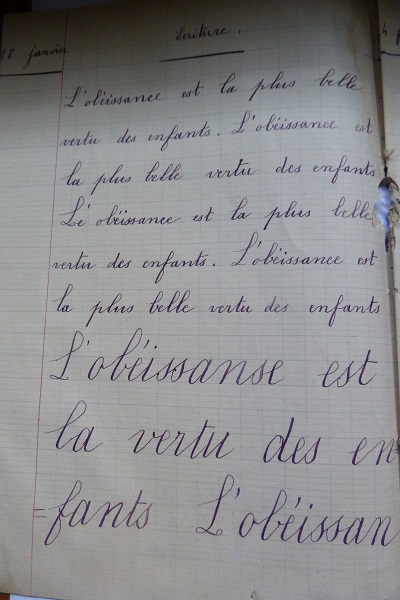 Ecriture.
28 janvier
L'obéissance est la plus belle
vertu des enfants. L'obéissance est
la plus belle vertu des enfants
Lé obéissance est la plus belle
vertu des enfants. L'obéissance est
la plus belle vertu des enfants
L'obéissanse est
la vertu des en
-fants L'obéissan